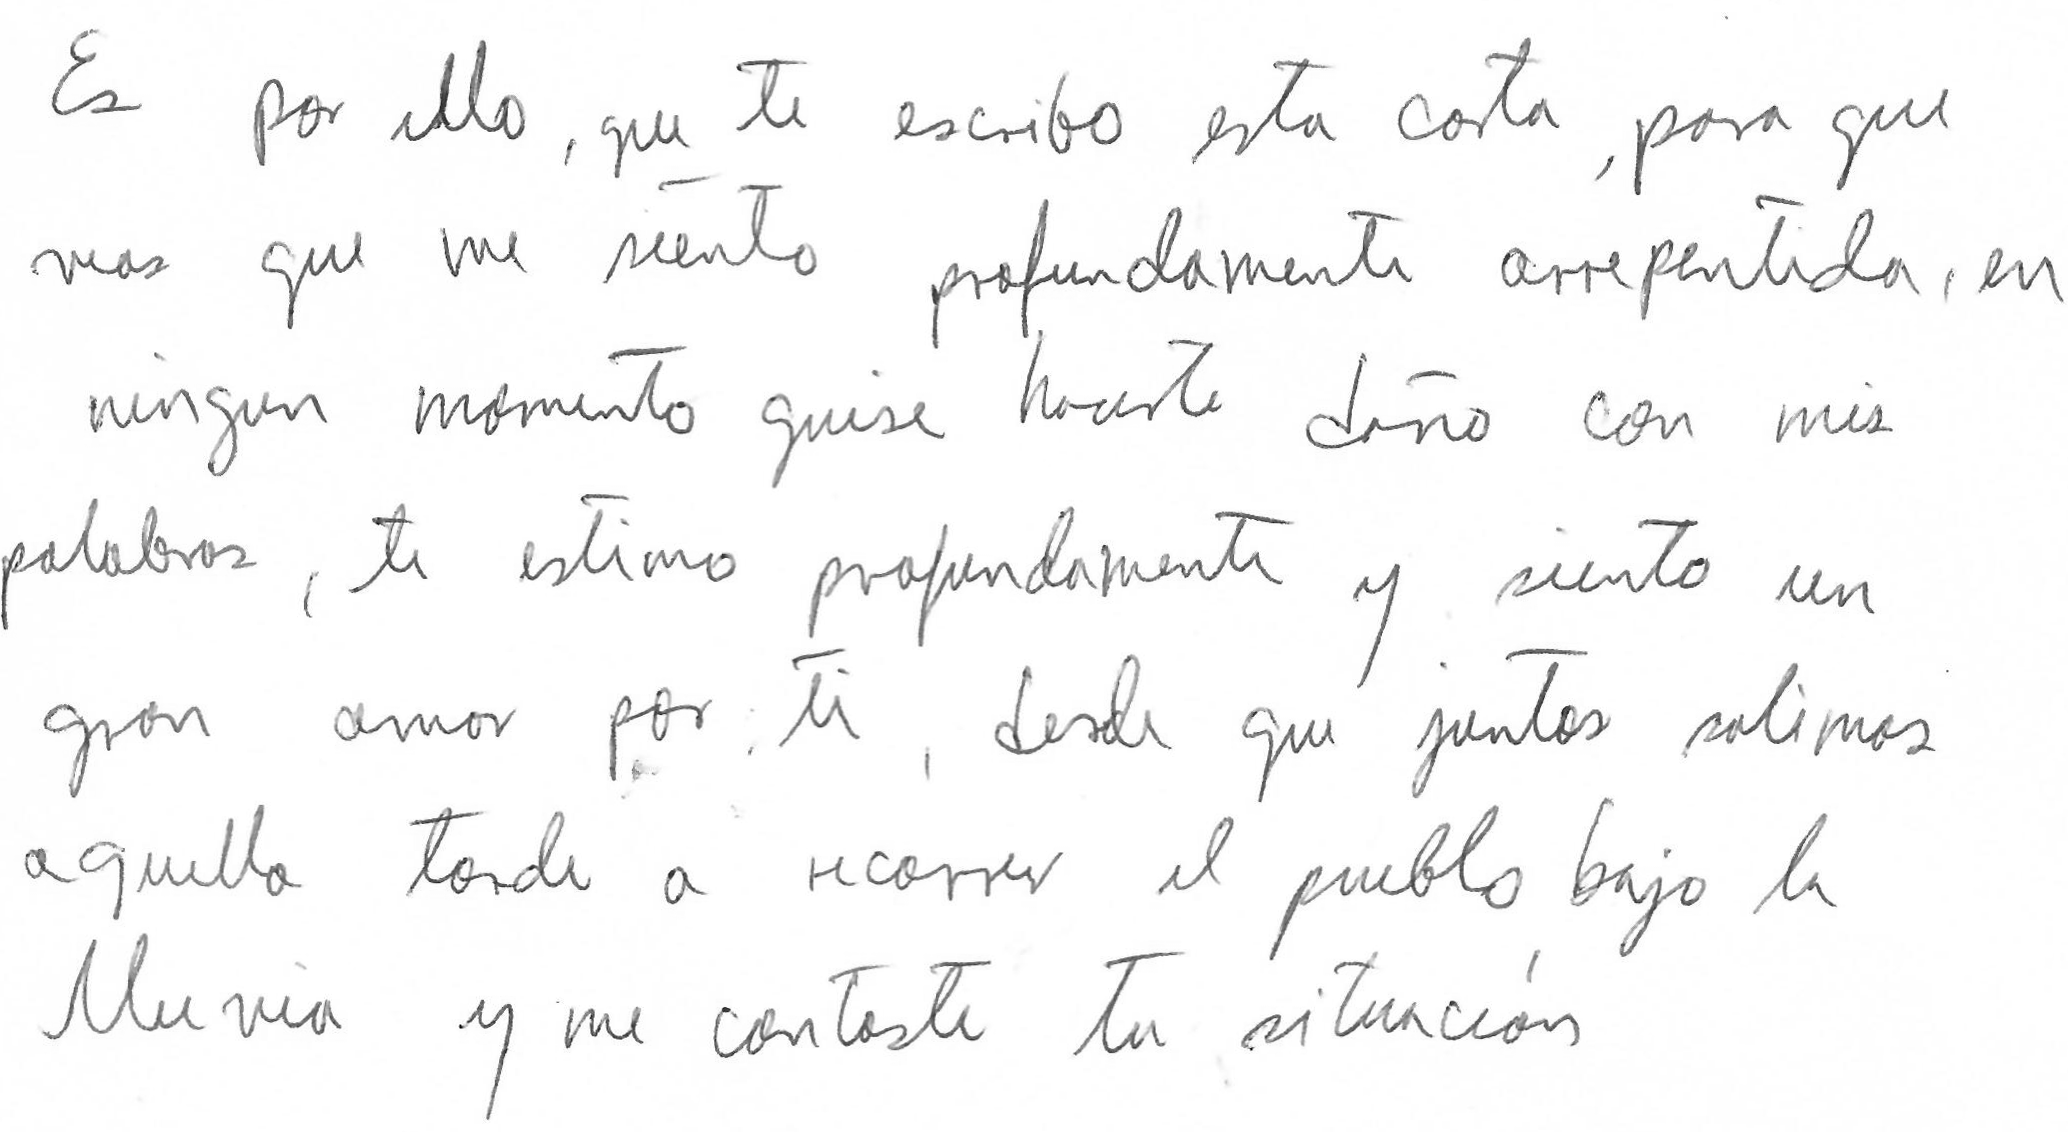 Es por ello, que te escribo esta carta, para que
veas que me siento profundamente arrepentida, en
ningun momento quise hacerte daño con mis
palabras, te estimo profundamente y siento un
gran amor por ti, desde que juntos salimos
aquella tarde a recorrer el pueblo bajo la
lluvia y me contaste tu situación